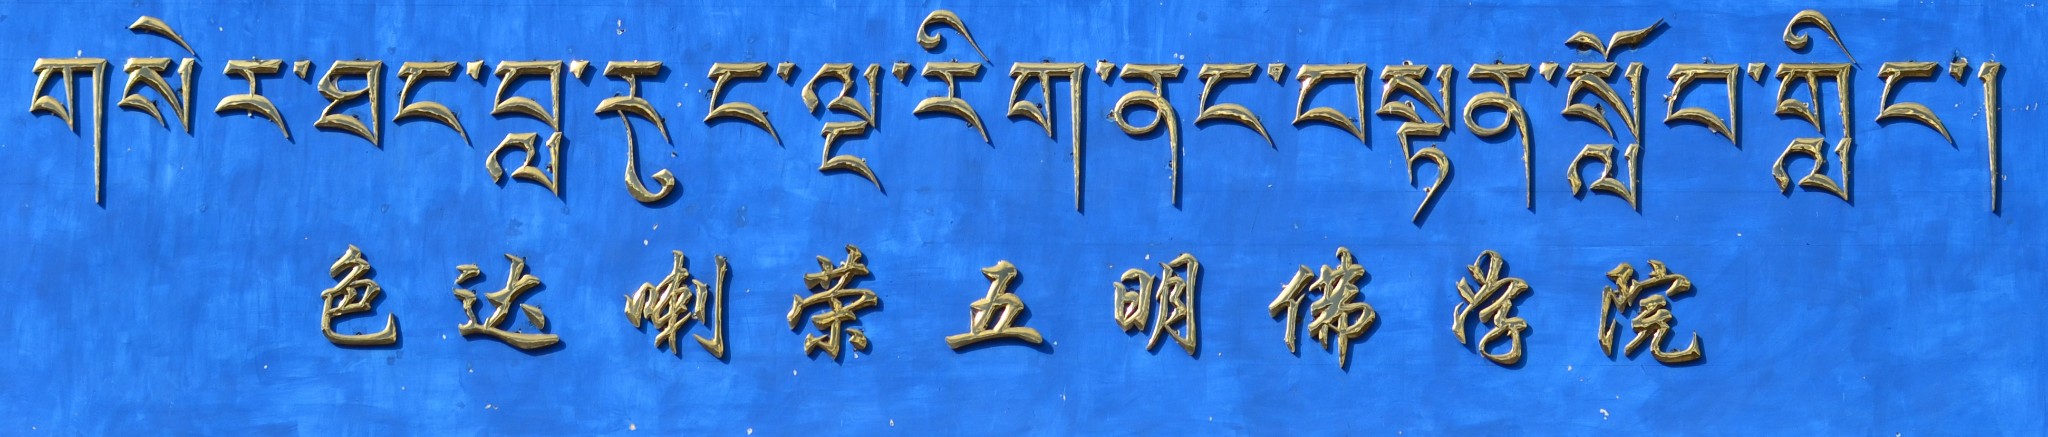 གསེར་ཐང་བླ་རུང་ལྔ་རིག་ནང་བསྟན་སློབ་གླིང་།
色达喇荣五明佛学院